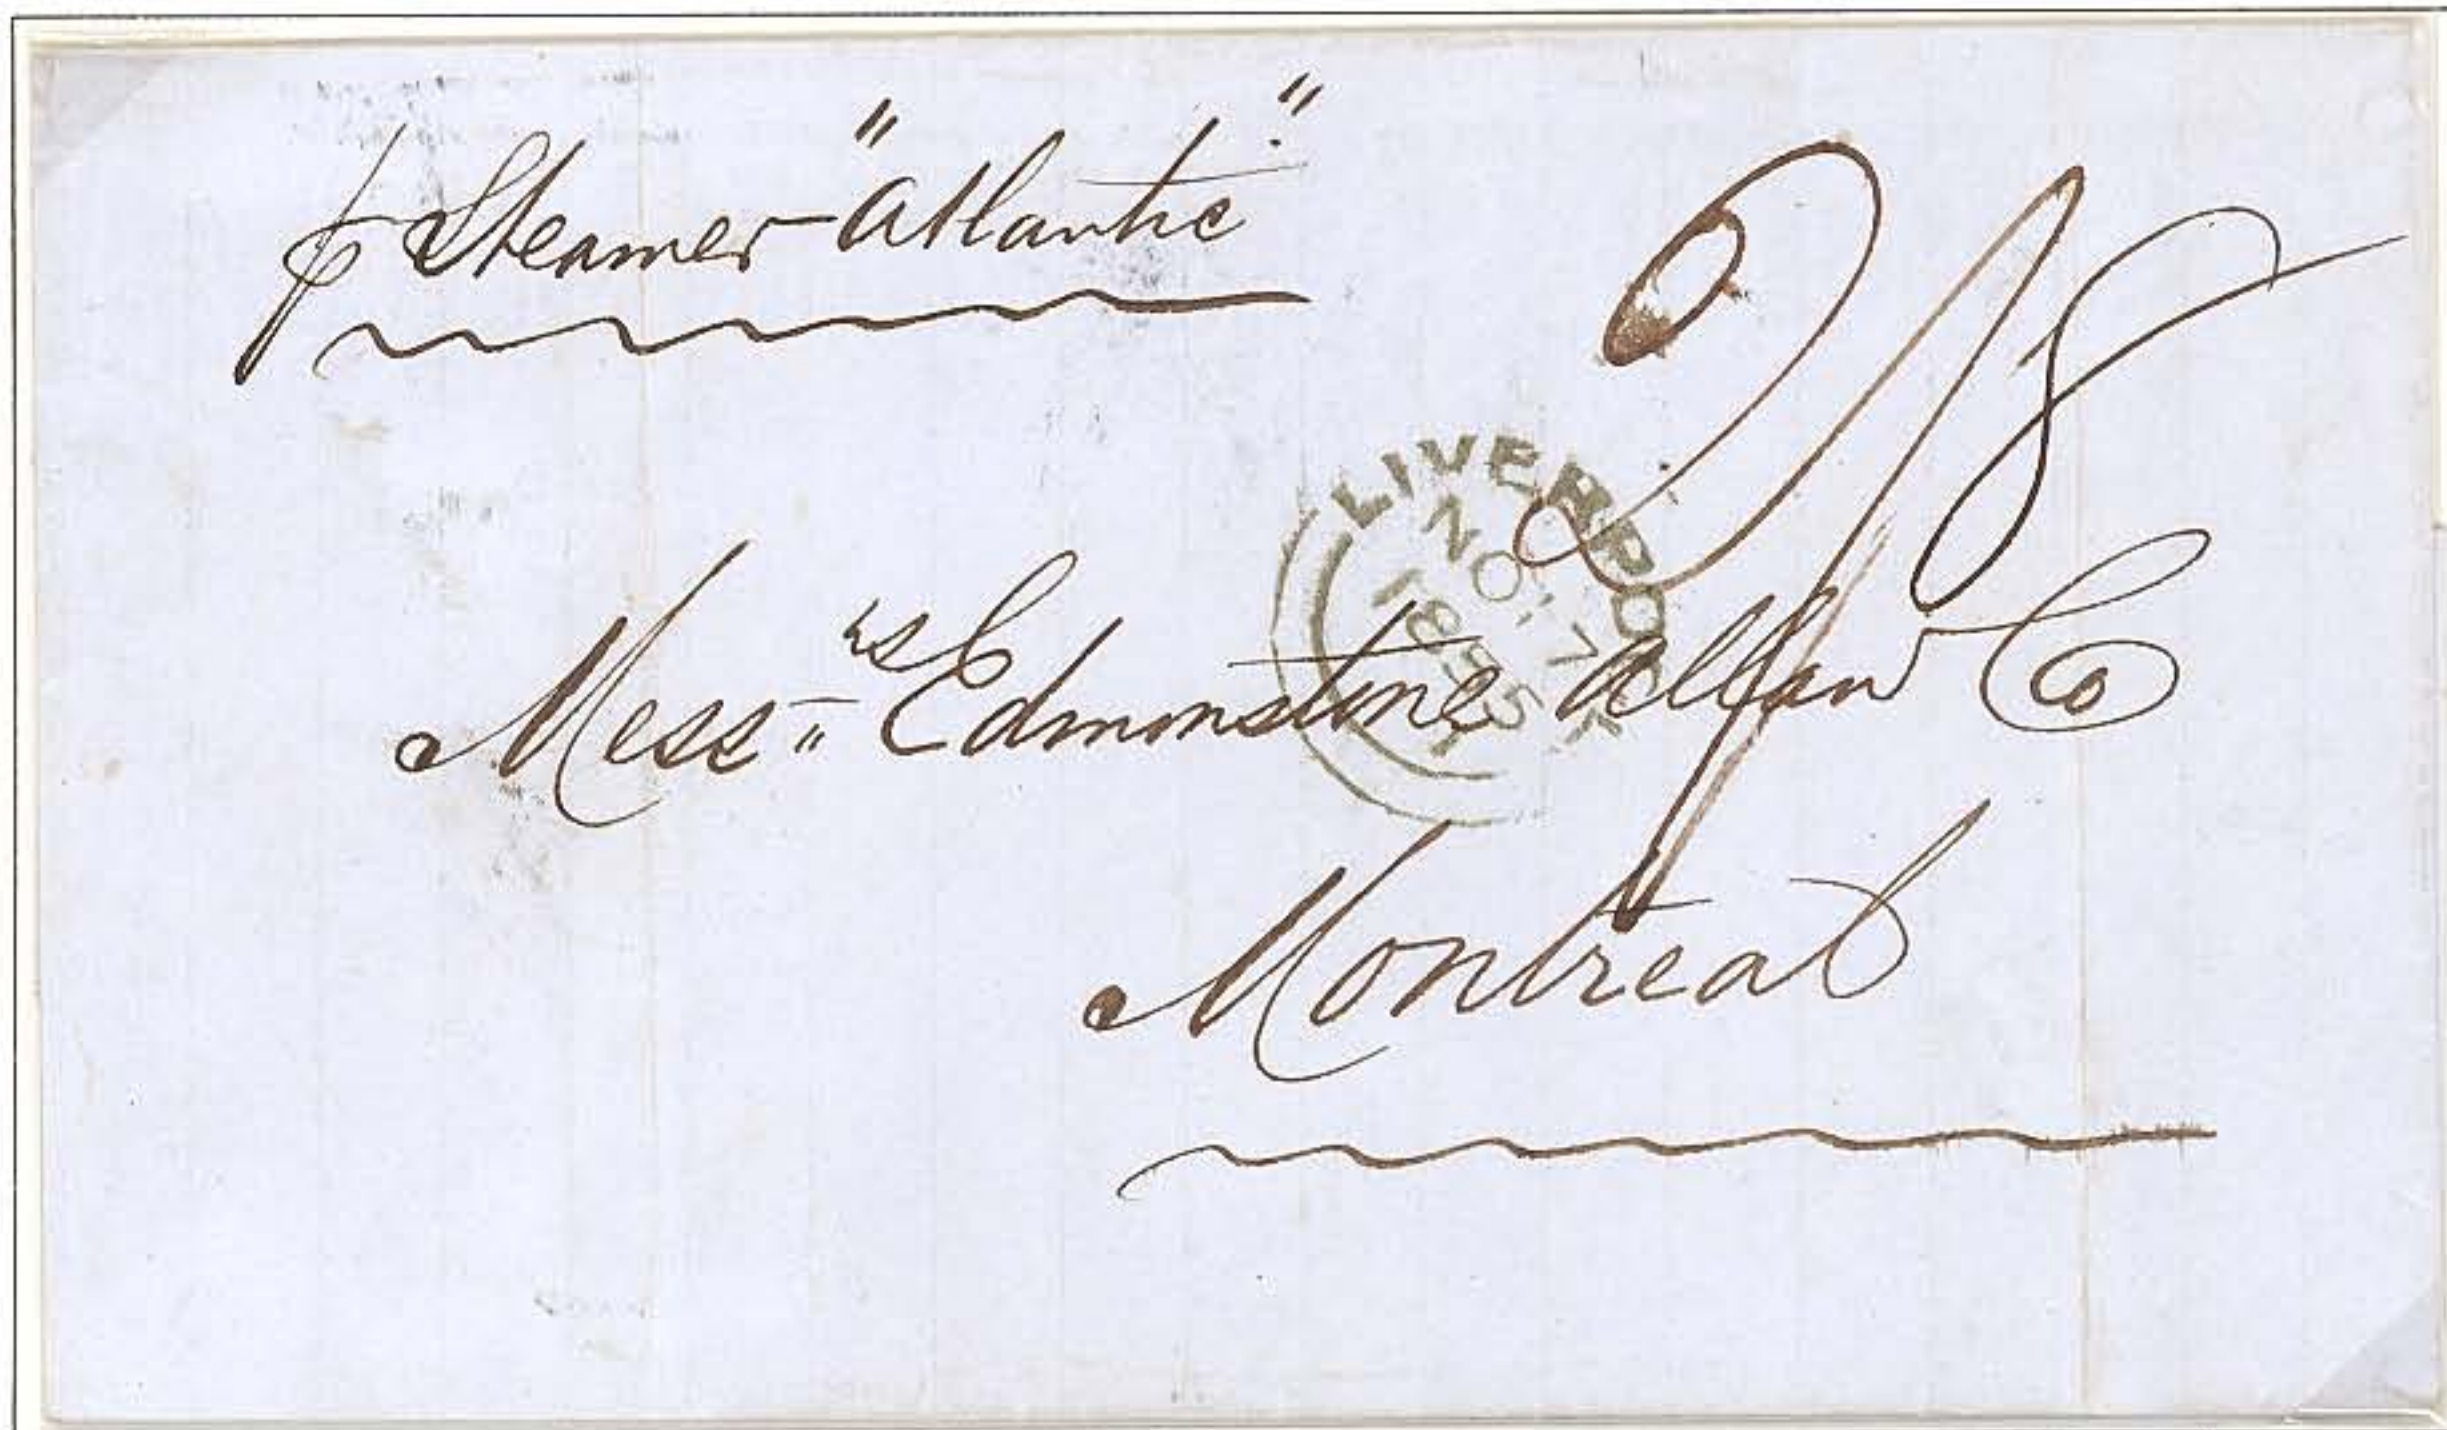 p Steamer "Atlantic"
2/8
LIVERPOOL
NO 17
1855
Messrs Edmonstone Allan Co
Montreal